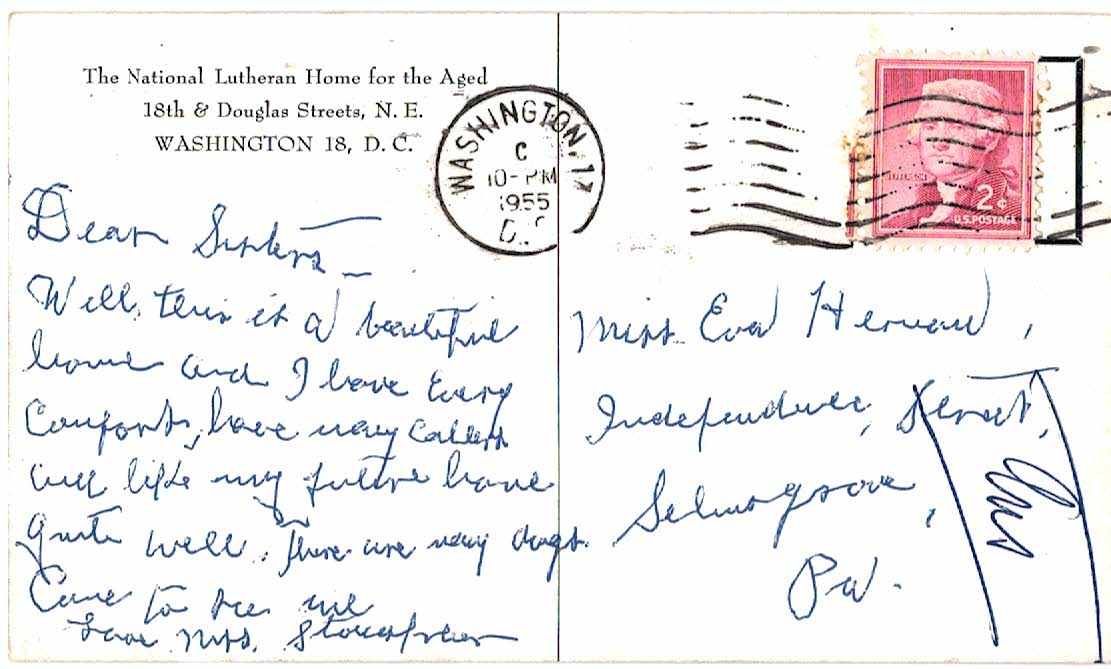 The National Lutheran Home for the Aged
18th & Douglas Streets, N. E.
WASHINGTON 18, D. C.
WASHINGTON, 17
C
10-PM
1955
D. C
JEFFERSON
2¢
U.S. POSTAGE
Dear Sisters —
Well, this is a beautiful
home and I have every
Comforts, have many callers
will like my future home
quite well. There are many
Come to see me
Love Mrs.
Miss Eva
Independence, Street,
Selinsgrove,
Pa.